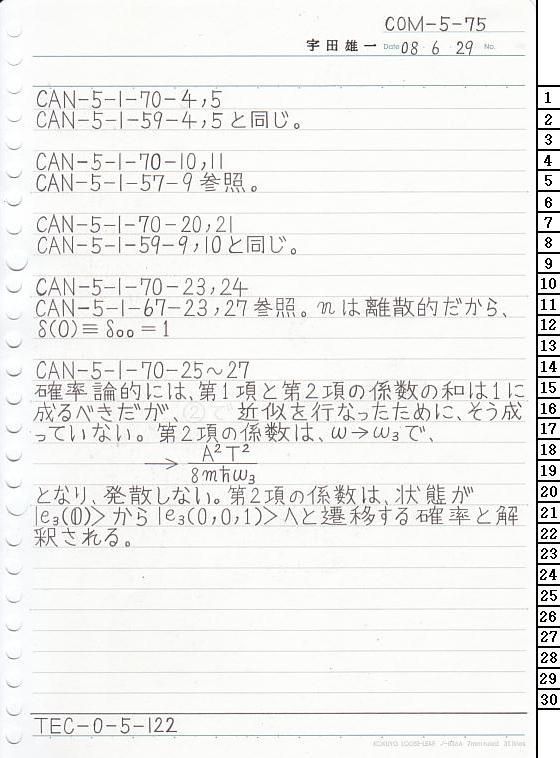 COM-5-75
宇田雄一 Date 08・6・29 No.
CAN-5-1-70-4,5
CAN-5-1-59-4,5と同じ。
CAN-5-1-70-10,11
CAN-5-1-57-9参照。
CAN-5-1-70-20,21
CAN-5-1-59-9,10と同じ。
CAN-5-1-70-23,24
CAN-5-1-67-23,27参照。nは離散的だから、
δ(0)≡δ₀₀=1
CAN-5-1-70-25~27
確率論的には、第1項と第2項の係数の和は1に
成るべきだが、②で近似を行なったために、そう成
っていない。第2項の係数は、ω→ω₃で、
→ A²T²/8mħω₃
となり、発散しない。第2項の係数は、状態が
|e₃(0)>から|e₃(0,0,1)>へと遷移する確率と解
釈される。
TEC-0-5-122
KOKUYO LOOSE-LEAF ノ-836A 7mm ruled 31 lines
1
2
3
4
5
6
7
8
9
10
11
12
13
14
15
16
17
18
19
20
21
22
23
24
25
26
27
28
29
30